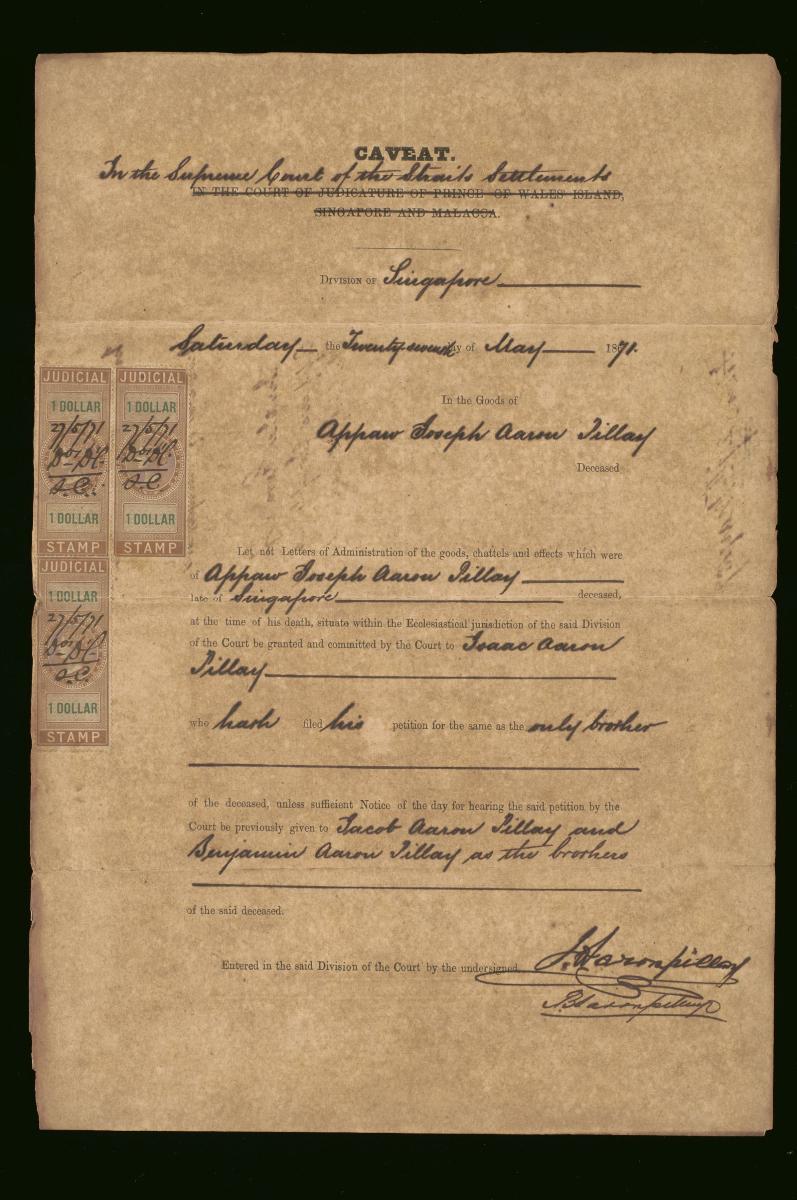 CAVEAT.
In the Supreme Court of the Straits Settlements
IN THE COURT OF JUDICATURE OF PRINCE OF WALES' ISLAND,
SINGAPORE AND MALACCA.
DIVISION OF Singapore
Saturday the Twenty seventh day of May 1871.
In the Goods of
Appaw Joseph Aaron Pillay
Deceased
JUDICIAL
1 DOLLAR
27/5/71
1 DOLLAR
STAMP
JUDICIAL
1 DOLLAR
27/5/71
1 DOLLAR
STAMP
JUDICIAL
1 DOLLAR
27/5/71
1 DOLLAR
STAMP
Let not Letters of Administration of the goods, chattels and effects which were
of Appaw Joseph Aaron Pillay
late of Singapore deceased,
at the time of his death, situate within the Ecclesiastical jurisdiction of the said Division
of the Court be granted and committed by the Court to Isaac Aaron
Pillay
who hath filed his petition for the same as the only brother
of the deceased, unless sufficient Notice of the day for hearing the said petition by the
Court be previously given to Jacob Aaron Pillay and
Benjamin Aaron Pillay as the brothers
of the said deceased.
Entered in the said Division of the Court by the undersigned J. Aaronpillay
B Aaronpillay